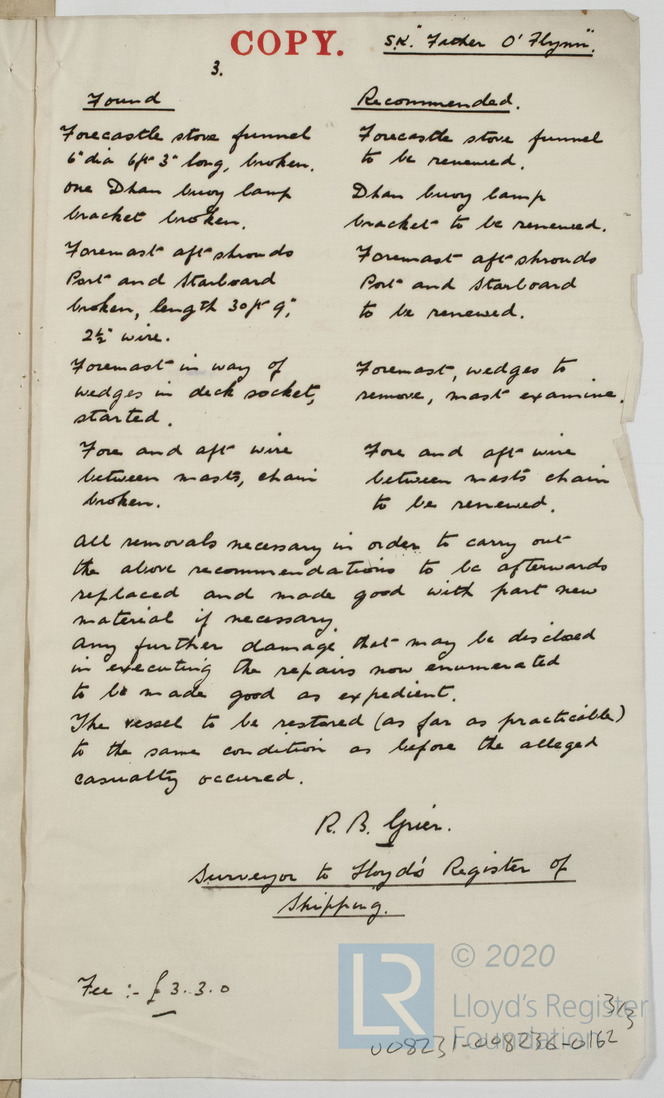 COPY.
S.K. "Father O'Flynn".
3.
Found
Forecastle stove funnel
6" dia 6ft 3" long, broken.
One Dhan buoy lamp
bracket broken.
Foremast aft shrouds
Port and Starboard
broken, length 30ft 9",
2½" wire.
Foremast in way of
wedges in deck socket,
started.
Fore and aft wire
between masts, chain
broken.
Recommended.
Forecastle stove funnel
to be renewed.
Dhan buoy lamp
bracket to be renewed.
Foremast aft shrouds
Port and Starboard
to be renewed.
Foremast, wedges to
remove, mast examine.
Fore and aft wire
between masts chain
to be renewed.
All removals necessary in order to carry out
the above recommendations to be afterwards
replaced and made good with part new
material if necessary.
Any further damage that may be disclosed
in executing the repairs now enumerated
to be made good as expedient.
The vessel to be restored (as far as practicable)
to the same condition as before the alleged
casualty occured.
R. B. Grier.
Surveyor to Lloyd's Register of
Shipping.
Fee :- £3.3.0
LR
© 2020
Lloyd's Register
Foundation
3/3
008231-008236-0162